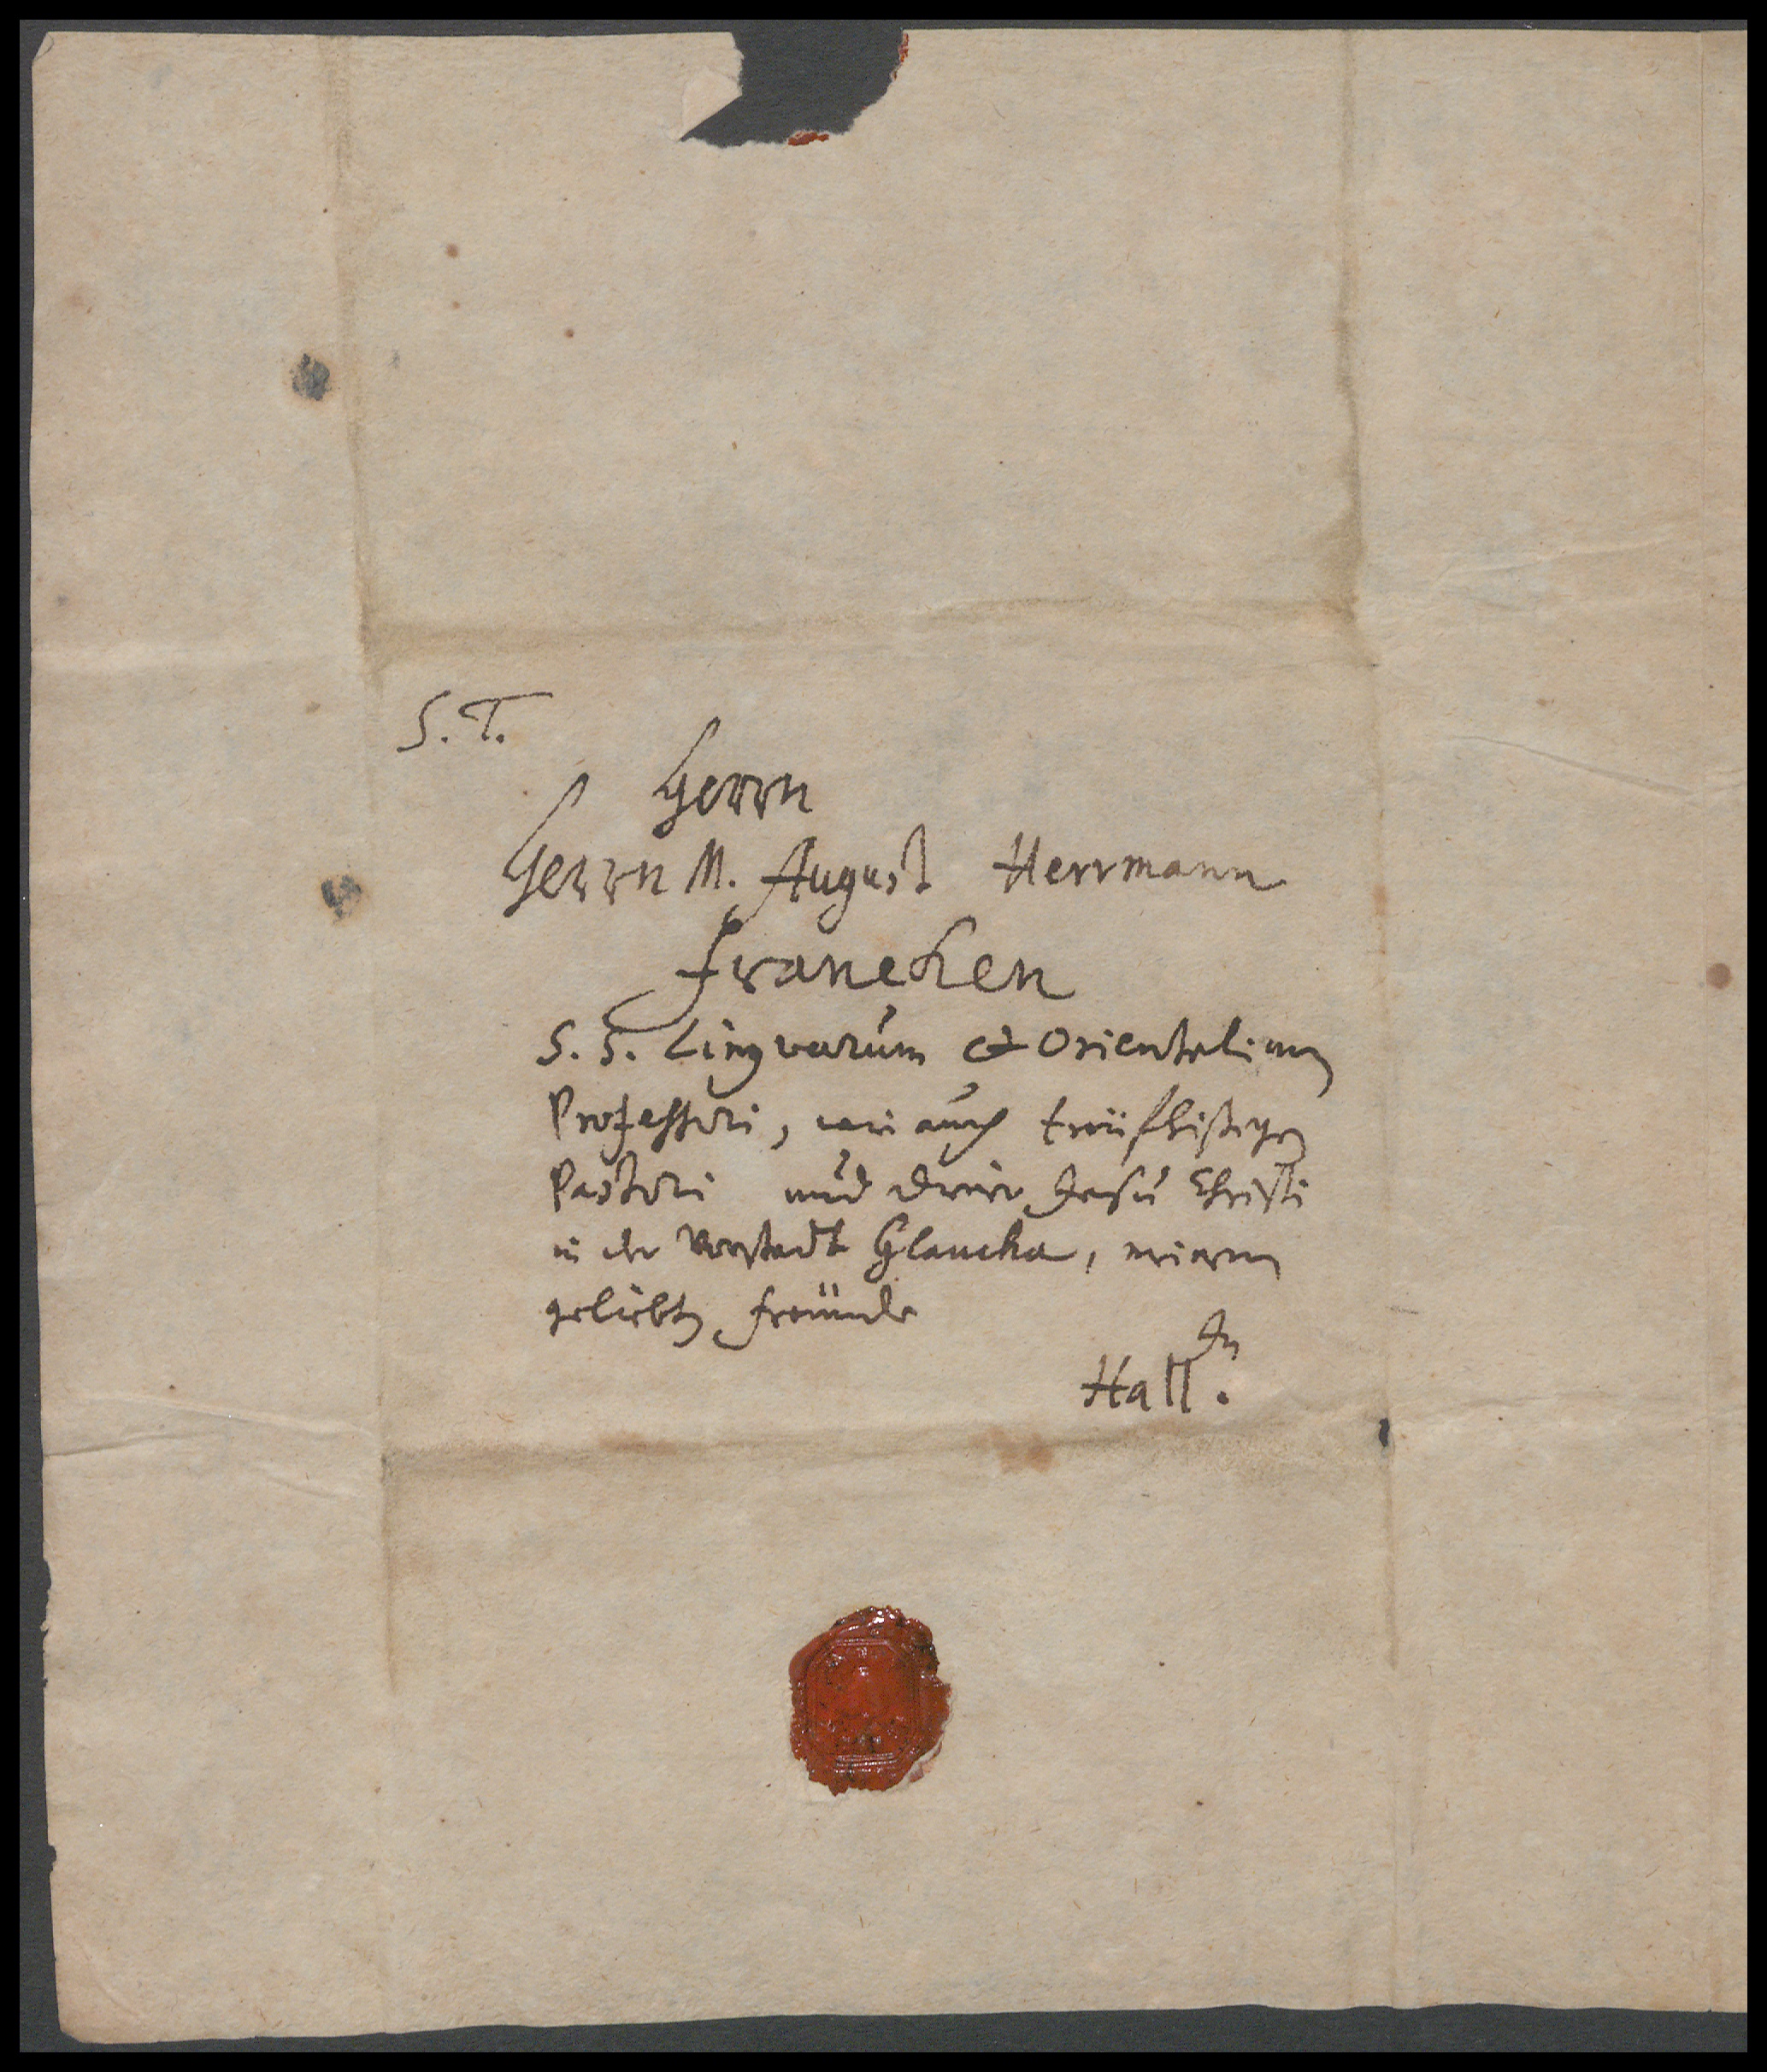 S. T.
Herrn
Herrn M. August Herrmann
Francken
S. S. Lingvarum et Orientalium
Professori, wie auch treüfleißigen
Pastori und Jesu Christi
in der Vorstadt Glaucha, meinem
geliebten freünde
In
Hall.